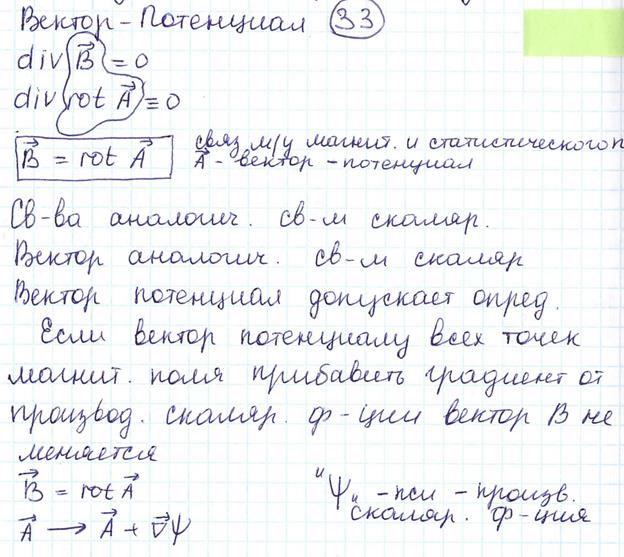 Вектор-Потенциал 33
div B⃗ = 0
div rot A⃗ ≡ 0
B⃗ = rot A⃗
связ м/у магнит. и статистического п
A⃗ - вектор - потенциал
Св-ва аналогич. св-м скаляр.
Вектор аналогич. св-м скаляр
Вектор потенциал допускает опред.
Если вектор потенциалу всех точек
магнит. поля прибавить градиент от
производ. скаляр. ф-ции вектор В не
меняется
B⃗ = rot A⃗
A⃗ → A⃗ + ∇⃗Ψ
"Ψ" - пси - произв.
скаляр. ф-ция